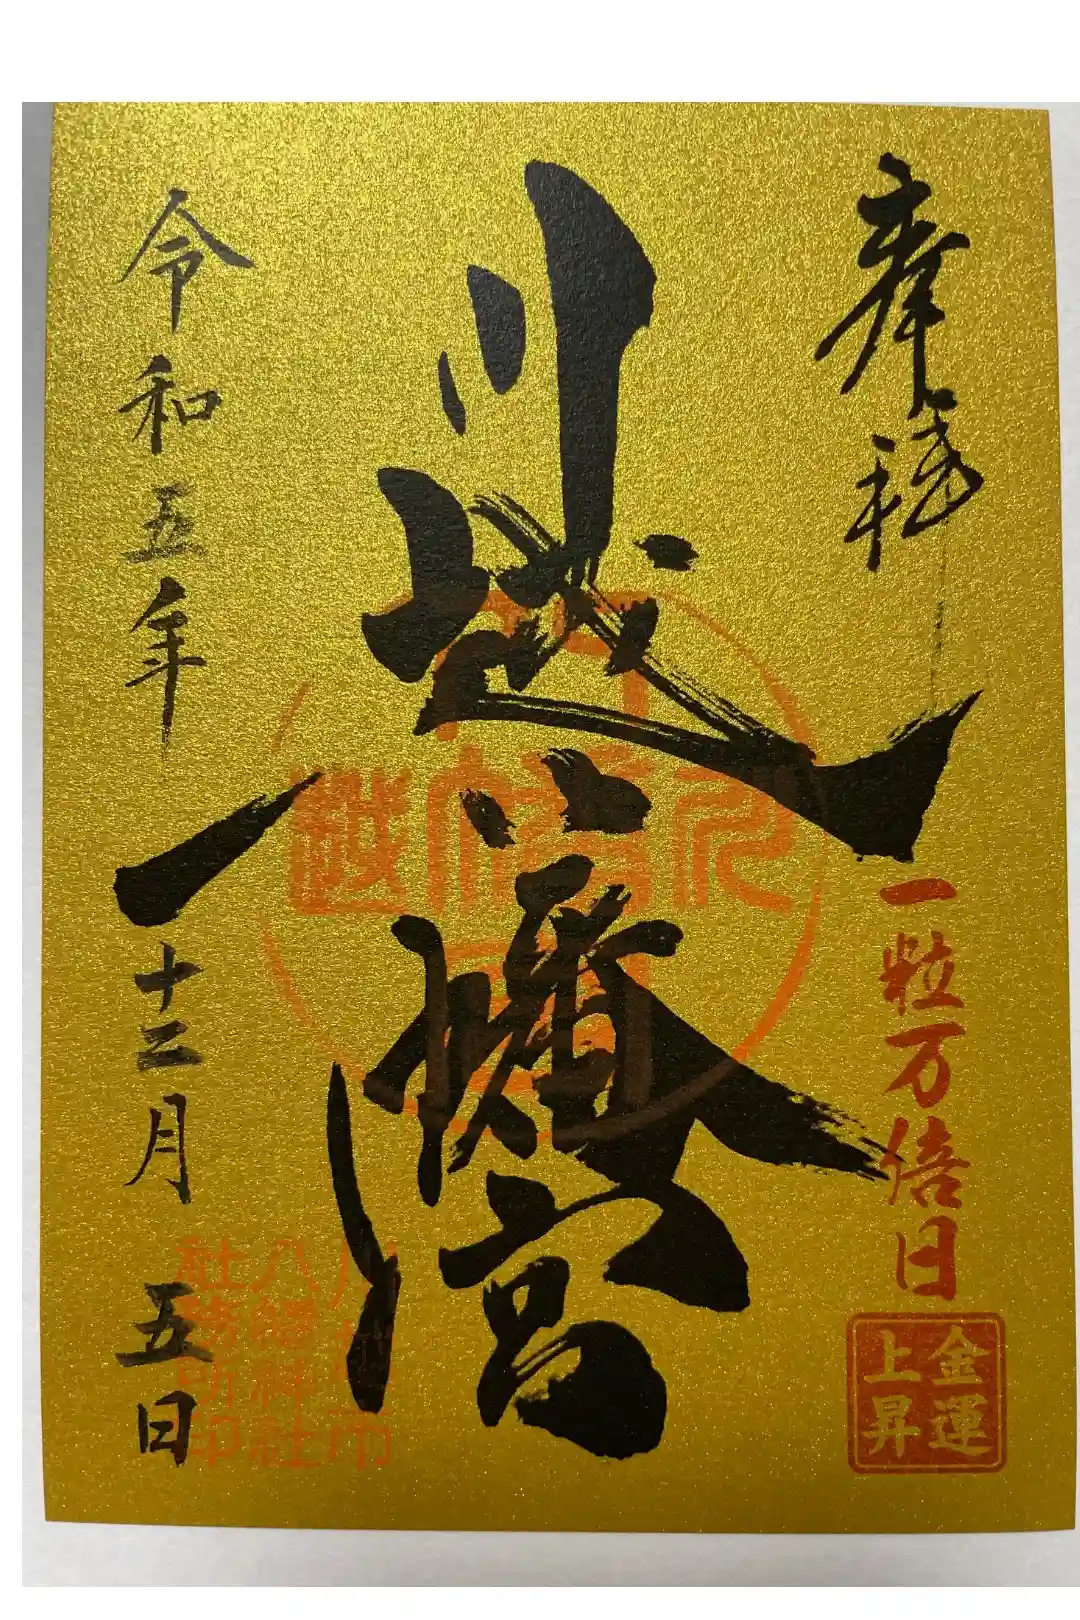 奉拝
一粒万倍日
金運
上昇
川越八幡宮
令和五年十二月五日
川越市
八幡神社
社務所印